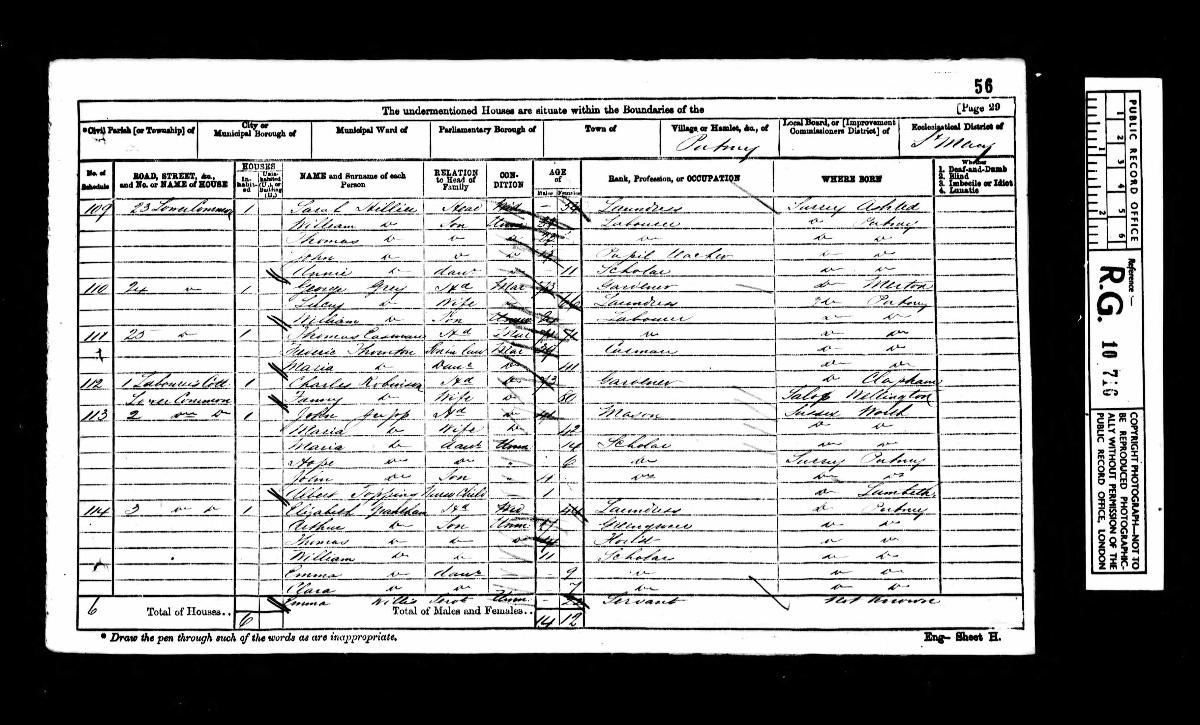 56
The undermentioned Houses are situate within the Boundaries of the [Page 29
*Civil Parish [or Township] of
City or Municipal Borough of
Municipal Ward of
Parliamentary Borough of
Town of
Village or Hamlet, &c., of
Putney
Local Board, or [Improvement Commissioners District] of
Ecclesiastical District of
St Mary
No. of Schedule
ROAD, STREET, &c., and No. or NAME of HOUSE
HOUSES
Inhabited
Uninhabited (U.), or Building (B.)
NAME and Surname of each Person
RELATION to Head of Family
CONDITION
AGE of
Males
Females
Rank, Profession, or OCCUPATION
WHERE BORN
Whether
1. Deaf-and-Dumb
2. Blind
3. Imbecile or Idiot
4. Lunatic
109 23 Lower Common 1 Sarah Hillier Head Wid - Laundress Surrey Ashted
William Do Son Unm Labourer Do Putney
Thomas Do Do Do Do Do Do
John Do Do Do Pupil Teacher Do Do
Annie Do daur 11 Scholar Do Do
110 24 Do 1 George Grey Hd Mar Gardener Do Merton
Lucy Do Wife Do Laundress Do Putney
William Do Son Unm Labourer Do Do
111 25 Do 1 Thomas Hd Mar Do Do Do
Thornton Mar Carman Do Do
Maria Do Daur Do Do Do
112 1 Labourers Cott 1 Charles Robinson Hd Do 73 Gardener Do Clapham
Lower Common Fanny Do Wife Do 80 Salop Wellington
113 2 Do Do 1 John Jupp Hd Do Mason Sussex
Maria Do Wife Do 42 Do Do
Maria Do daur Unm 14 Scholar Do Do
Hope Do Do 6 Do Surrey Putney
John Do Son 4 Do Do Do
Albert Topping Nurse Child 1 Do Lambeth
114 3 Do Do 1 Elizabeth Hd Wid Laundress Do Putney
Arthur Do Son Unm 17 Do Do
Thomas Do Do Do Do Do
William Do Do 11 Scholar Do Do
Emma Do daur - 9 Do Do Do
Clara Do Do - 7 Do Do Do
Emma Willis Servt Unm - Servant Not Known
6 Total of Houses.. 6 Total of Males and Females.. 14 12
* Draw the pen through such of the words as are inappropriate.
Eng- Sheet H.
PUBLIC RECORD OFFICE
1 2 3 4 5 6
1 2
Reference :-
R.G. 10 716
COPYRIGHT PHOTOGRAPH—NOT TO
BE REPRODUCED PHOTOGRAPHIC-
ALLY WITHOUT PERMISSION OF THE
PUBLIC RECORD OFFICE, LONDON